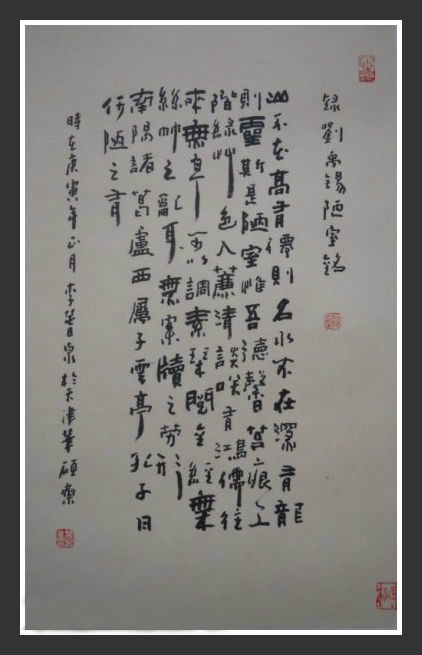 録劉禹锡陋室銘
山不在高有僊則名水不在深有龍
則靈斯是陋室惟吾德馨苔痕上
階緑艸色入簾清談笑有鴻儒往
來無白丁可以調素琴閱金經無
絲竹之亂耳無案牘之勞形
南陽諸葛廬西屬子雲亭孔子曰
何陋之有
時在庚寅年正月李泉於天津華碩齋